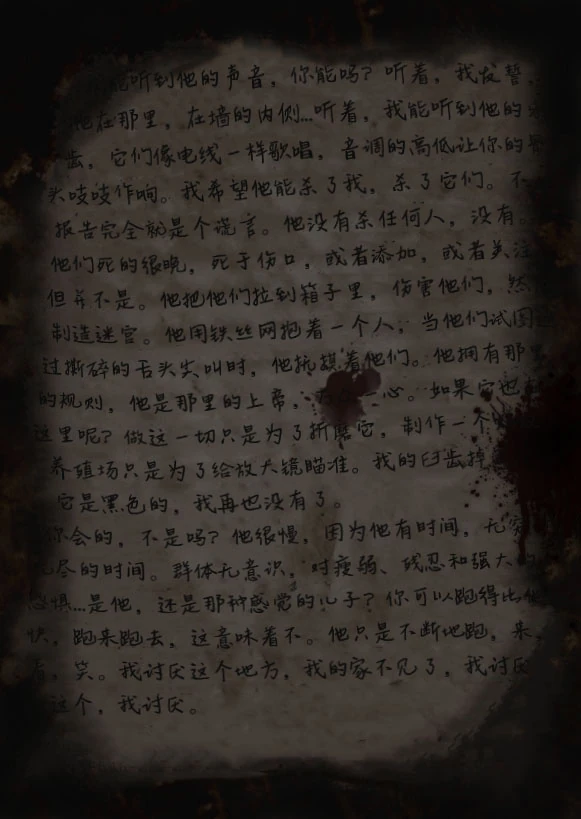 能听到他的声音，你能吗？听着，我发誓，
他在那里，在墙的内侧...听着，我能听到他的
齿，它们像电线一样歌唱，音调的高低让你的
头吱吱作响。我希望他能杀了我，杀了它们。不
报告完全就是个谎言。他没有杀任何人，没有。
他们死的很晚，死于伤口，或者添加，或者关注
但并不是。他把他们拉到箱子里，伤害他们，然
制造迷宫。他用铁丝网抱着一个人；当他们试图
过撕碎的舌头尖叫时，他抚摸着他们。他拥有那里
的规则，他是那里的上帝，一心。如果它也
这里呢？做这一切只是为了折磨它，制作一个
养殖场只是为了给放大镜瞄准。我的臼齿掉
它是黑色的，我再也没有了。
你会的，不是吗？他很慢，因为他有时间，无穷
无尽的时间。群体无意识，对瘦弱、残忍和强大的
恐惧...是他，还是那种感觉的儿子？你可以跑得比他
快，跑来跑去，这意味着不。他只是不断地跑，来，
看，笑。我讨厌这个地方，我的家不见了，我讨厌
这个，我讨厌。